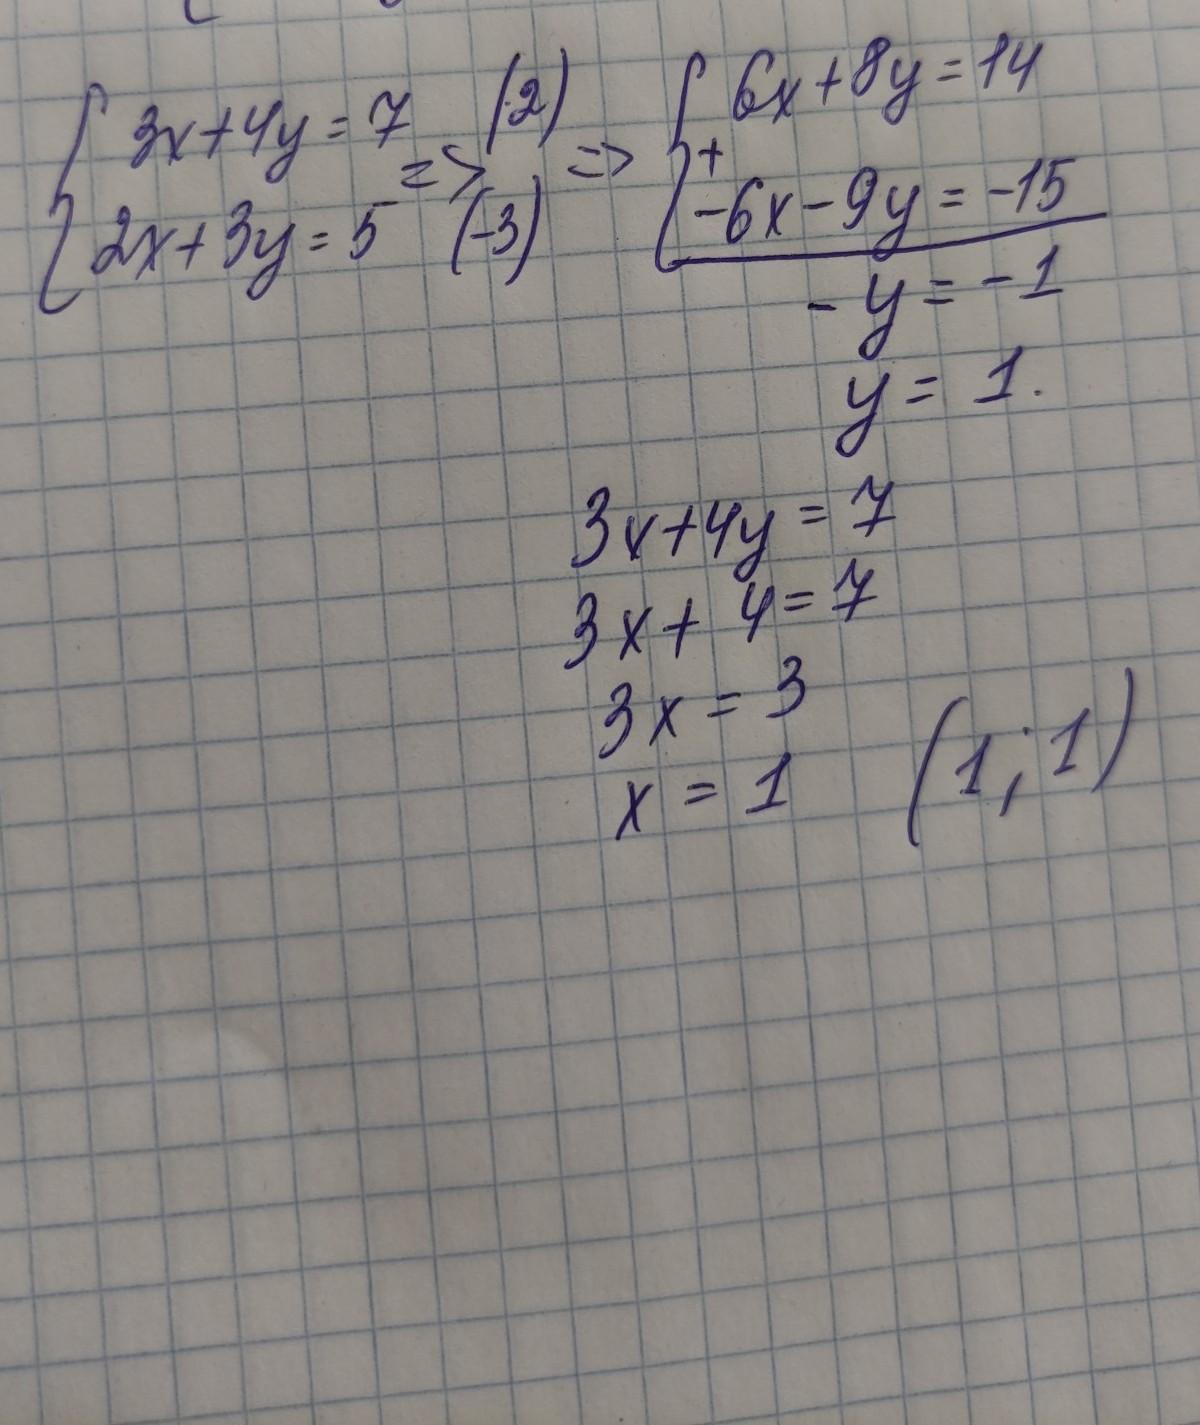 3x+4y=7 (·2)
=> => 
2x+3y=5 (·-3)
6x+8y=14
+
-6x-9y=-15
-y=-1
y=1.
3x+4y=7
3x+4=7
3x=3
x=1 (1;1)